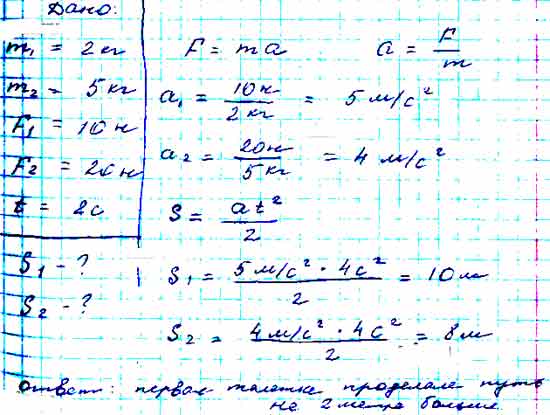 Дано:
m₁ = 2 кг
m₂ = 5 кг
F₁ = 10 н
F₂ = 20 н
t = 2 с
S₁ - ?
S₂ - ?
F = ma a = F/m
a₁ = 10н/2кг = 5 м/с²
a₂ = 20н/5кг = 4 м/с²
S = at²/2
S₁ = 5 м/с² · 4с²/2 = 10 м
S₂ = 4 м/с² · 4с²/2 = 8 м
Ответ: первая тележка проделала путь
на 2 метра больше